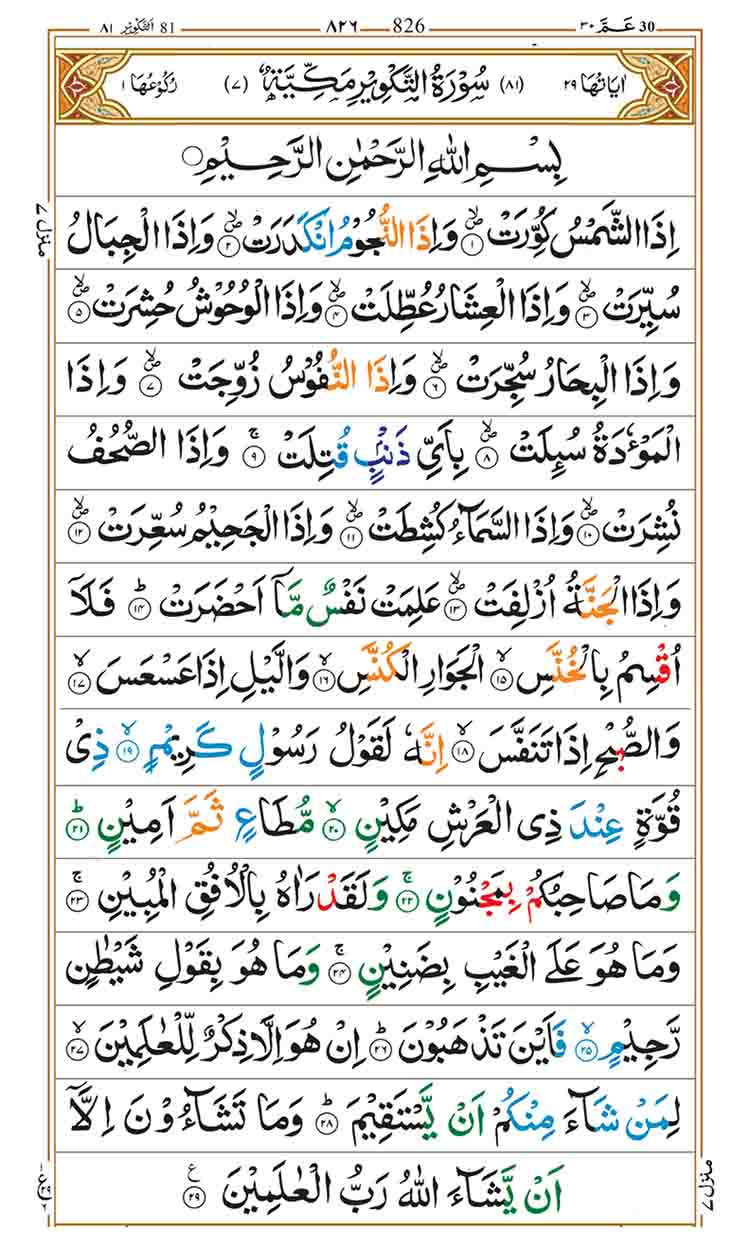 ٨١ التكوير 81 ٨٢٦ 826 عَمَّ ٣٠ 30
اٰيَاتُهَا ٢٩ (٨١) سُوْرَةُ التَّكْوِيْرِ مَكِّيَّةٌ (٧) رُكُوْعُهَا ١
بِسْمِ اللّٰهِ الرَّحْمٰنِ الرَّحِيْمِ
اِذَا الشَّمْسُ كُوِّرَتْ ۪ۙ‏﴿۱﴾ وَاِذَا النُّجُوْمُ انْكَدَرَتْ ۪ۙ‏﴿۲﴾ وَاِذَا الْجِبَالُ
سُيِّرَتْ ۪ۙ‏﴿۳﴾ وَاِذَا الْعِشَارُ عُطِّلَتْ ۪ۙ‏﴿۴﴾ وَاِذَا الْوُحُوْشُ حُشِرَتْ ۪ۙ‏﴿۵﴾
وَاِذَا الْبِحَارُ سُجِّرَتْ ۪ۙ‏﴿۶﴾ وَاِذَا النُّفُوْسُ زُوِّجَتْ ۪ۙ‏﴿۷﴾ وَاِذَا
الْمَوْءٗدَةُ سُئِلَتْ ۪ۙ‏﴿۸﴾ بِاَيِّ ذَنْۢبٍ قُتِلَتْ ۚ‏﴿۹﴾ وَاِذَا الصُّحُفُ
نُشِرَتْ ۪ۙ‏﴿۱۰﴾ وَاِذَا السَّمَآءُ كُشِطَتْ ۪ۙ‏﴿۱۱﴾ وَاِذَا الْجَحِيْمُ سُعِّرَتْ ۪ۙ‏﴿۱۲﴾
وَاِذَا الْجَنَّةُ اُزْلِفَتْ ۪ۙ‏﴿۱۳﴾ عَلِمَتْ نَفْسٌ مَّاۤ اَحْضَرَتْ ؕ‏﴿۱۴﴾ فَلَاۤ
اُقْسِمُ بِالْخُنَّسِ ۙ‏﴿۱۵﴾ الْجَوَارِ الْكُنَّسِ ۙ‏﴿۱۶﴾ وَالَّيْلِ اِذَا عَسْعَسَ ۙ‏﴿۱۷﴾
وَالصُّبْحِ اِذَا تَنَفَّسَ ۙ‏﴿۱۸﴾ اِنَّهٗ لَقَوْلُ رَسُوْلٍ كَرِيْمٍ ۙ‏﴿۱۹﴾ ذِيْ
قُوَّةٍ عِنْدَ ذِي الْعَرْشِ مَكِيْنٍ ۙ‏﴿۲۰﴾ مُّطَاعٍ ثَمَّ اَمِيْنٍ ؕ‏﴿۲۱﴾
وَمَا صَاحِبُكُمْ بِمَجْنُوْنٍ ۚ‏﴿۲۲﴾ وَلَقَدْ رَاٰهُ بِالْاُفُقِ الْمُبِيْنِ ۚ‏﴿۲۳﴾
وَمَا هُوَ عَلَى الْغَيْبِ بِضَنِيْنٍ ۚ‏﴿۲۴﴾ وَمَا هُوَ بِقَوْلِ شَيْطٰنٍ
رَّجِيْمٍ ۙ‏﴿۲۵﴾ فَاَيْنَ تَذْهَبُوْنَ ؕ‏﴿۲۶﴾ اِنْ هُوَ اِلَّا ذِكْرٌ لِّلْعٰلَمِيْنَ ۙ‏﴿۲۷﴾
لِمَنْ شَآءَ مِنْكُمْ اَنْ يَّسْتَقِيْمَ ؕ‏﴿۲۸﴾ وَمَا تَشَآءُوْنَ اِلَّاۤ
اَنْ يَّشَآءَ اللّٰهُ رَبُّ الْعٰلَمِيْنَ ﴿۲۹﴾ ع
منزل ٧
منزل ٧